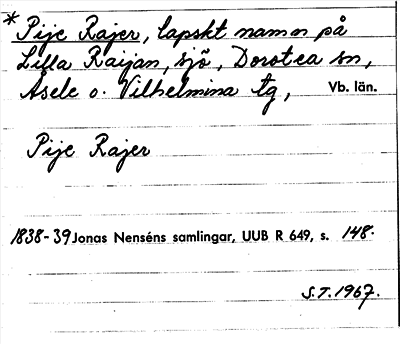 * Pije Rajer, lapskt namn på
Lilla Raijan, sjö, Dorotea sn,
Åsele o. Vilhelmina tg, Vb. län.
Pije Rajer
1838-39 Jonas Nenséns samlingar, UUB R 649, s. 148.
S.T. 1967.